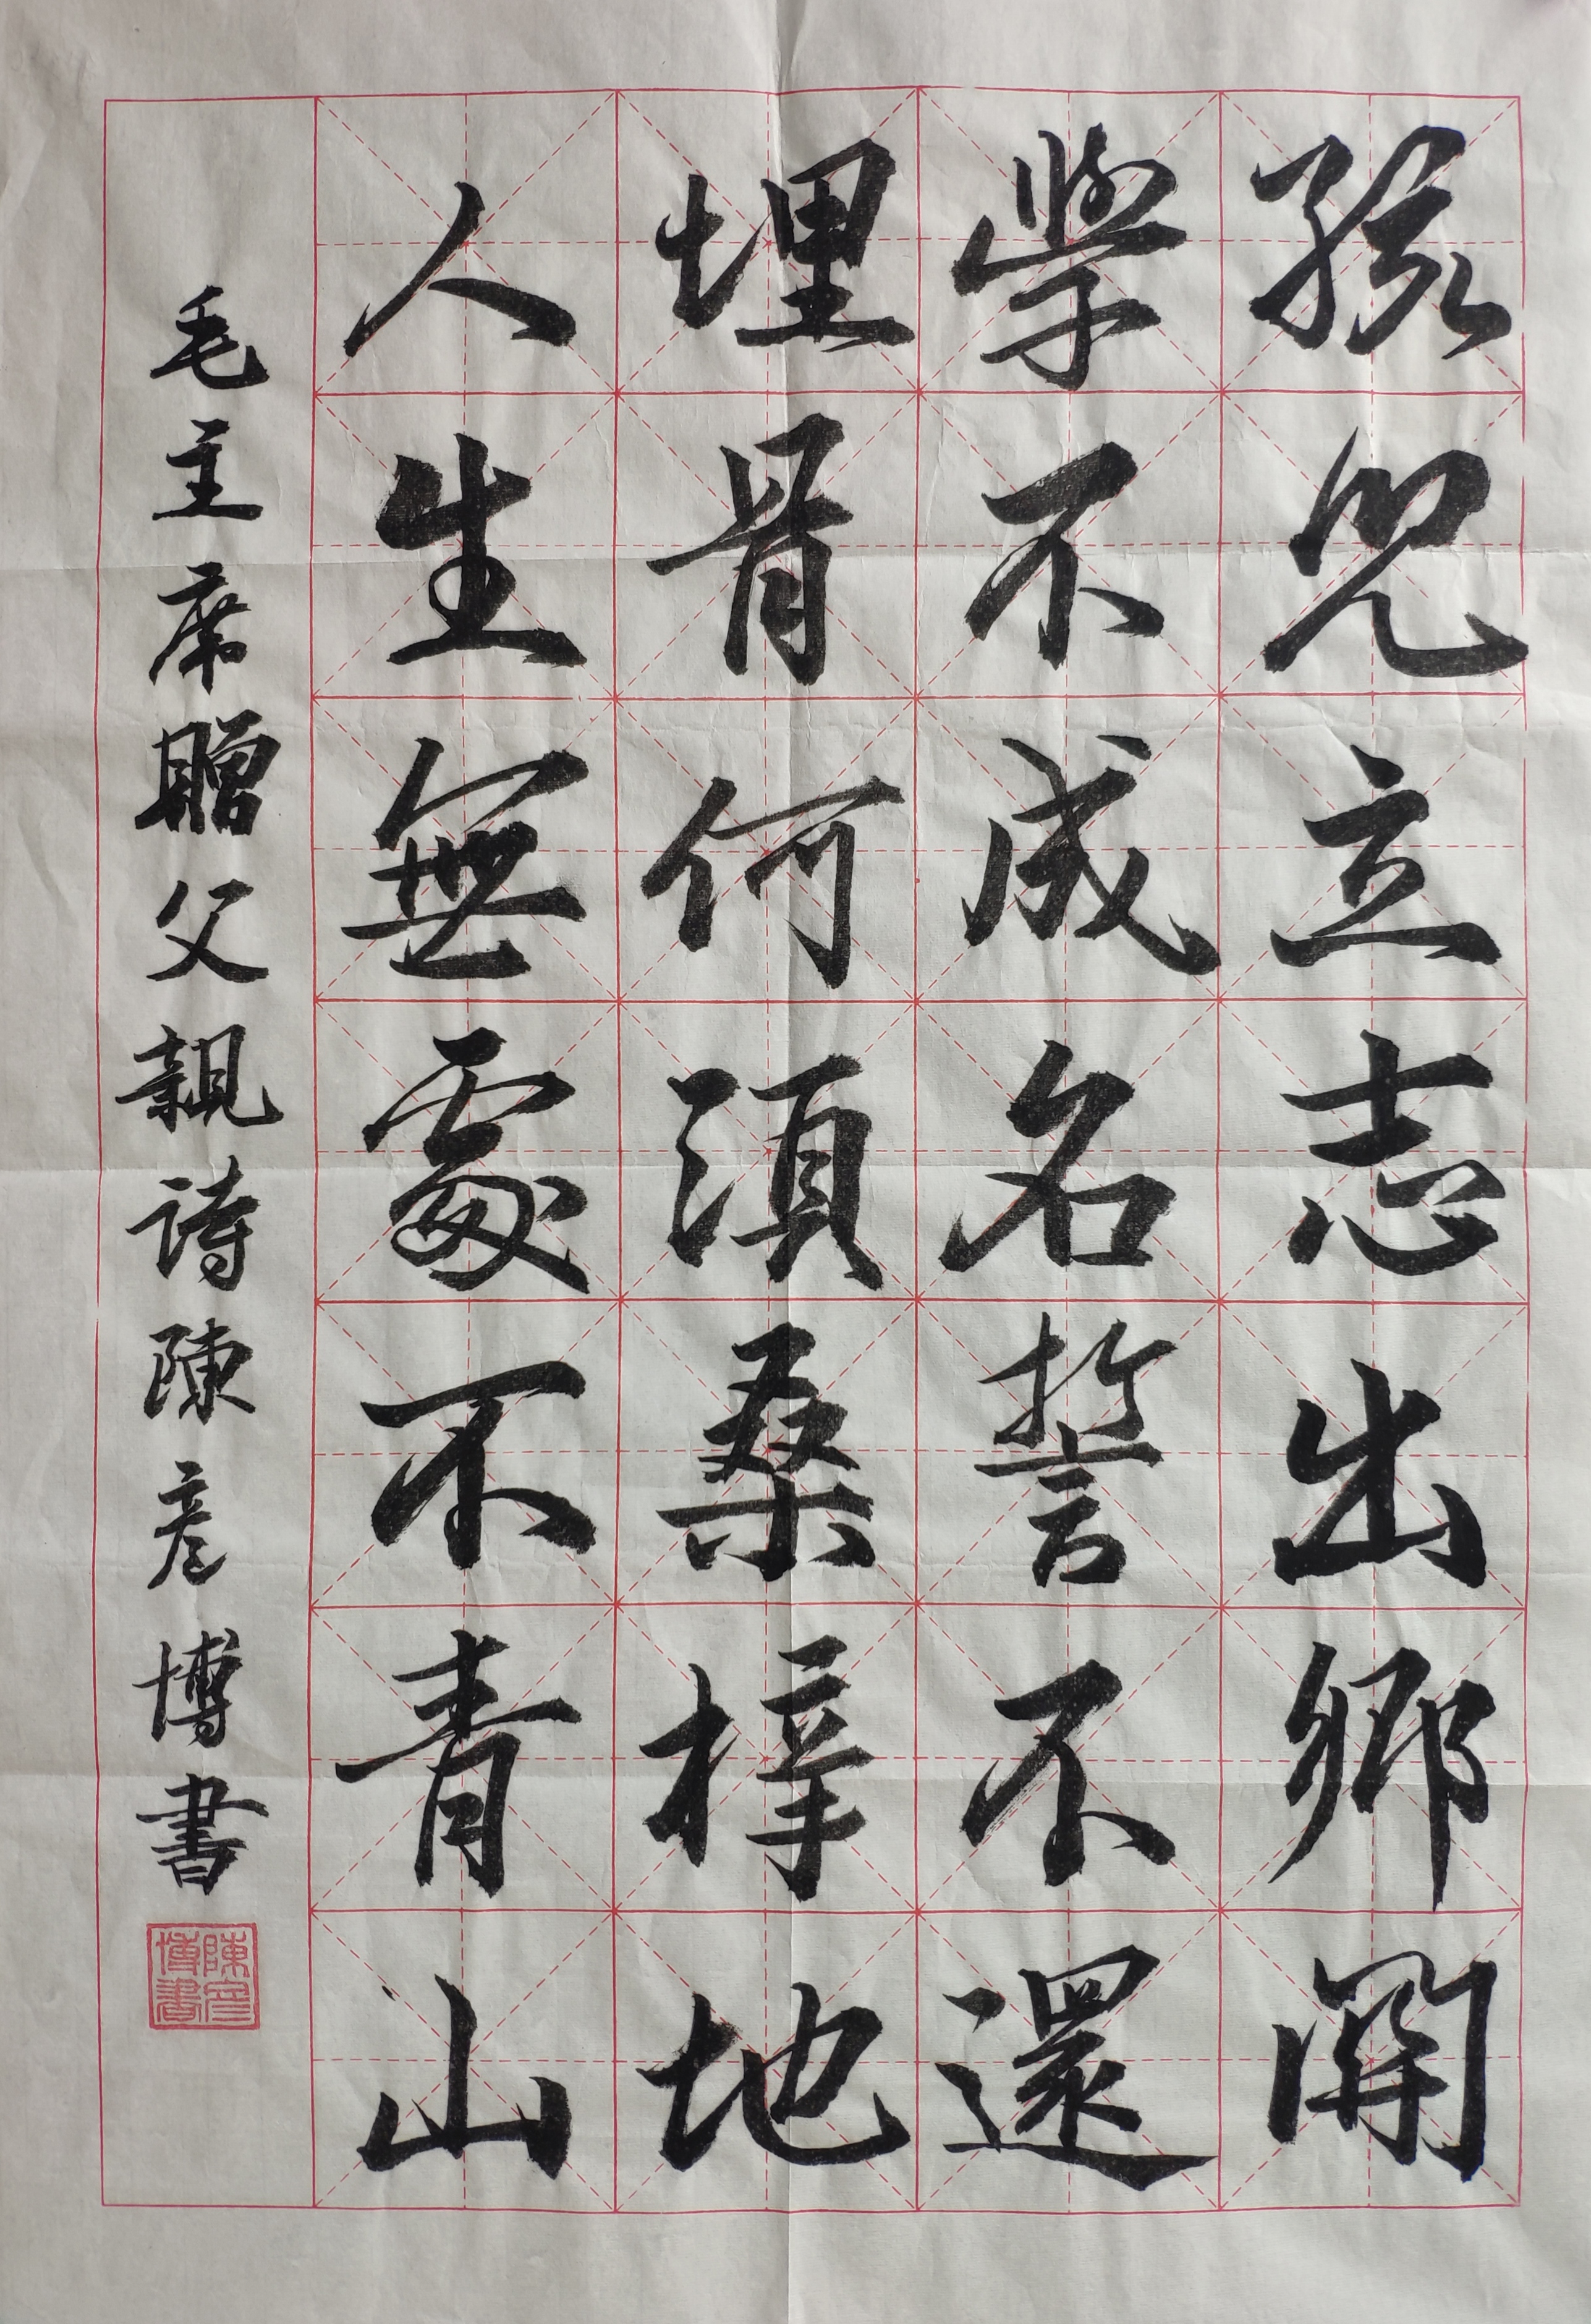 孩兒立志出鄉關
學不成名誓不還
埋骨何須桑梓地
人生無處不青山
毛主席贈父親诗陳彥博書
陳彥博書